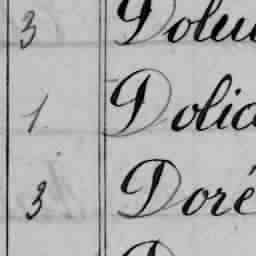 3 Dolu
1 Dolic
3 Doré